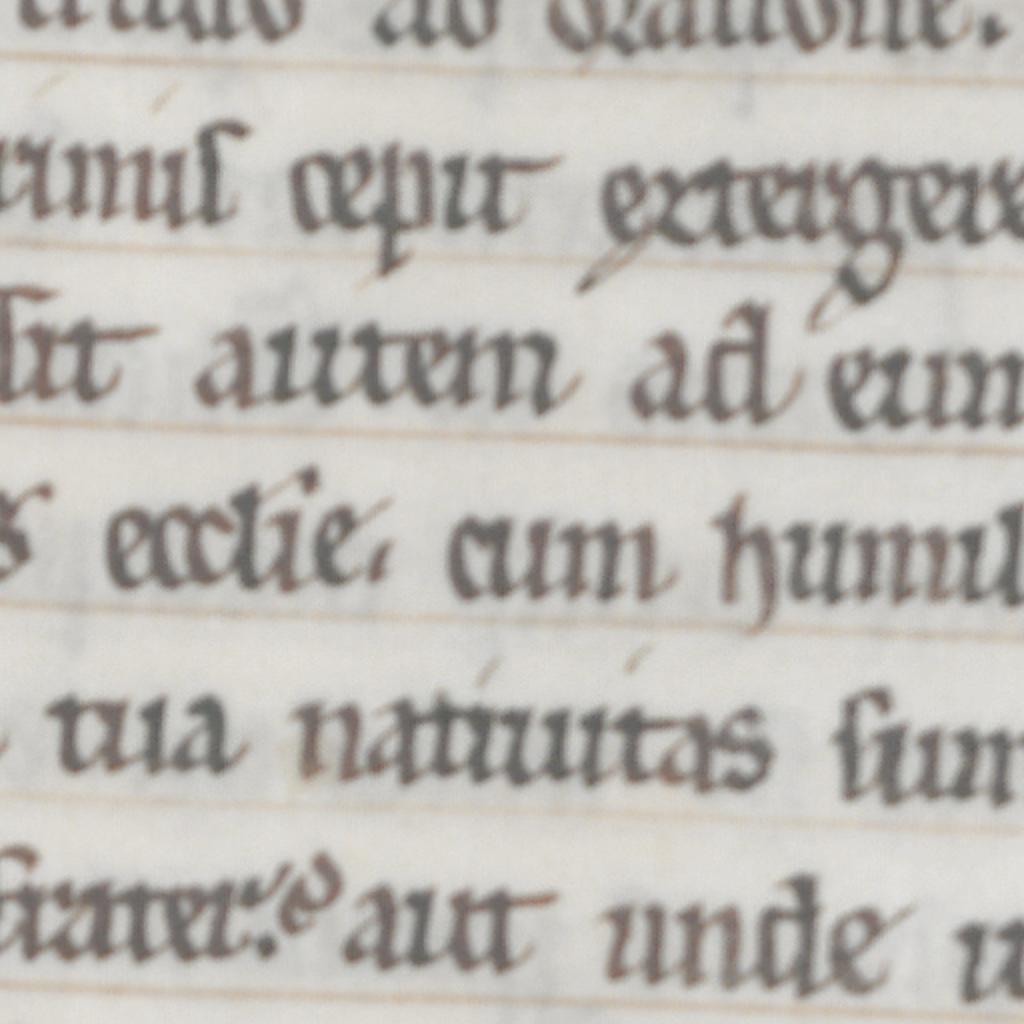 ab oratione.
cepit extergere
autem ad eum
ecclie. cum humil
tua natiuitas sun
frater. aut unde u